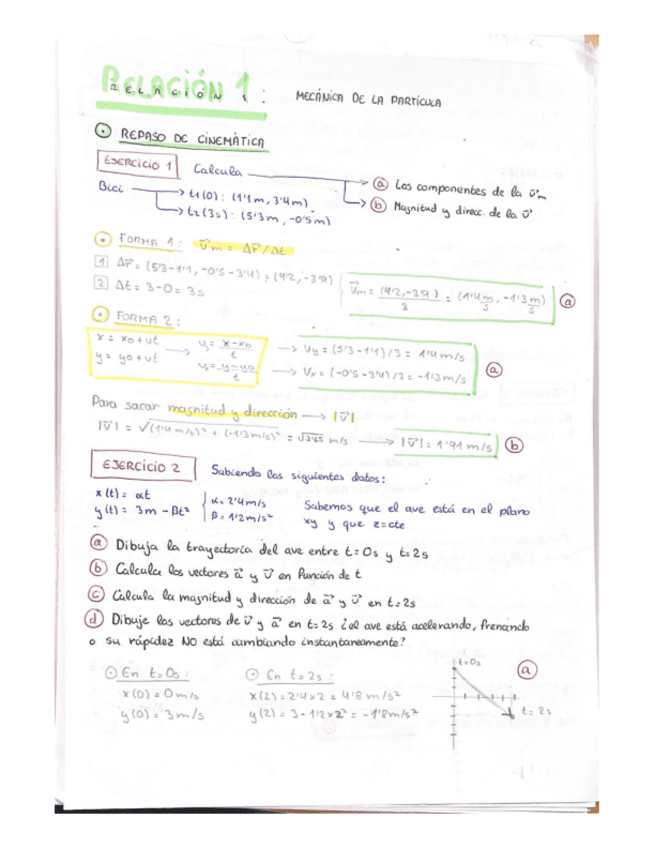 RELACIÓN 1 : MECÁNICA DE LA PARTÍCULA
REPASO DE CINEMÁTICA
EJERCICIO 1 Calcula → ⓐ Las componentes de la v⃗m
Bici → t1(0): (1'1m, 3'4m) → ⓑ Magnitud y direcc. de la v⃗
→ t2(3s): (5'3m, -0'5m)
FORMA 1: v⃗m = Δr⃗/Δt
1 Δr⃗ = (5'3-1'1, -0'5-3'4) = (4'2, -3'9)
2 Δt = 3-0 = 3s
v⃗m = (4'2, -3'9) / 3 = (1'4 m/s, -1'3 m/s) ⓐ
FORMA 2:
x = x0 + vt → vx = x-x0 / t → vy = (5'3-1'1)/3 = 1'4 m/s
y = y0 + vt vy = y-y0 / t → vx = (-0'5-3'4)/3 = -1'3 m/s ⓐ
Para sacar magnitud y dirección → |v⃗|
|v⃗| = √(1'4 m/s)² + (-1'3 m/s)² = √3'65 m/s → |v⃗| = 1'91 m/s ⓑ
EJERCICIO 2 Sabiendo los siguientes datos:
x(t) = αt α = 2'4 m/s Sabemos que el ave está en el plano
y(t) = 3m - βt² β = 1'2 m/s² xy y que z=cte
ⓐ Dibuja la trayectoria del ave entre t=0s y t=2s
ⓑ Calcula los vectores a⃗ y v⃗ en función de t
ⓒ Calcula la magnitud y dirección de a⃗ y v⃗ en t=2s
ⓓ Dibuje los vectores de v⃗ y a⃗ en t=2s ¿el ave está acelerando, frenando
o su rápidez NO está cambiando instantaneamente?
En t=0s: En t=2s: t=0s ⓐ
x(0) = 0 m/s x(2) = 2'4×2 = 4'8 m/s²
y(0) = 3 m/s y(2) = 3 - 1'2×2² = -1'8 m/s² t=2s